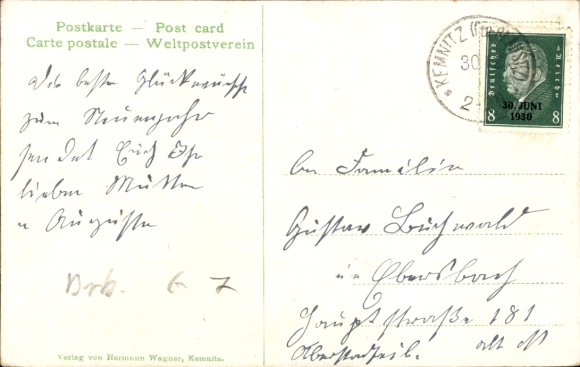 Postkarte — Post card
Carte postale — Weltpostverein
Die besten Glückwünsche
zum Neuenjahr
sendet Euch Ihr
lieben Mutter
u Auguste
Drb. 6 7
Verlag von Hermann Wagner, Kemnitz.
KEMNITZ
30.
2
Deutsches Reich
30. JUNI
1930
8 8
An Familie
Gustav Buchwald
in Ebersbach
Hauptstraße 181
Oberstadteil.